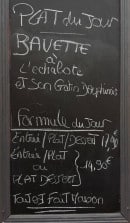 PLAT du Jour
BAVETTE
à
L'echalote
et Son Gratin Dauphinois
Formule du Jour
Entrée/Plat/Dessert
Entrée/Plat
ou
14,90€
PLAT DESSERT
Tout est Fait Maison